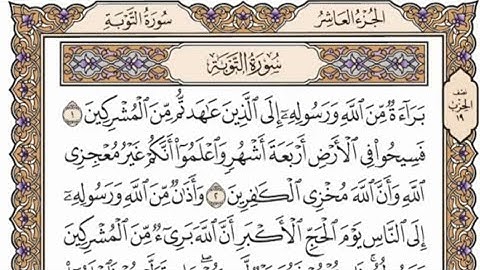 الجزء العاشر
سورة التوبة
سُورَةُ التَّوْبَةِ
نصف
الحزب
١٩
بَرَآءَةٌ مِّنَ ٱللَّهِ وَرَسُولِهِۦٓ إِلَى ٱلَّذِينَ عَٰهَدتُّم مِّنَ ٱلْمُشْرِكِينَ ١
فَسِيحُوا۟ فِى ٱلْأَرْضِ أَرْبَعَةَ أَشْهُرٍ وَٱعْلَمُوٓا۟ أَنَّكُمْ غَيْرُ مُعْجِزِى
ٱللَّهِ وَأَنَّ ٱللَّهَ مُخْزِى ٱلْكَٰفِرِينَ ٢ وَأَذَٰنٌ مِّنَ ٱللَّهِ وَرَسُولِهِۦٓ
إِلَى ٱلنَّاسِ يَوْمَ ٱلْحَجِّ ٱلْأَكْبَرِ أَنَّ ٱللَّهَ بَرِىٓءٌ مِّنَ ٱلْمُشْرِكِينَ